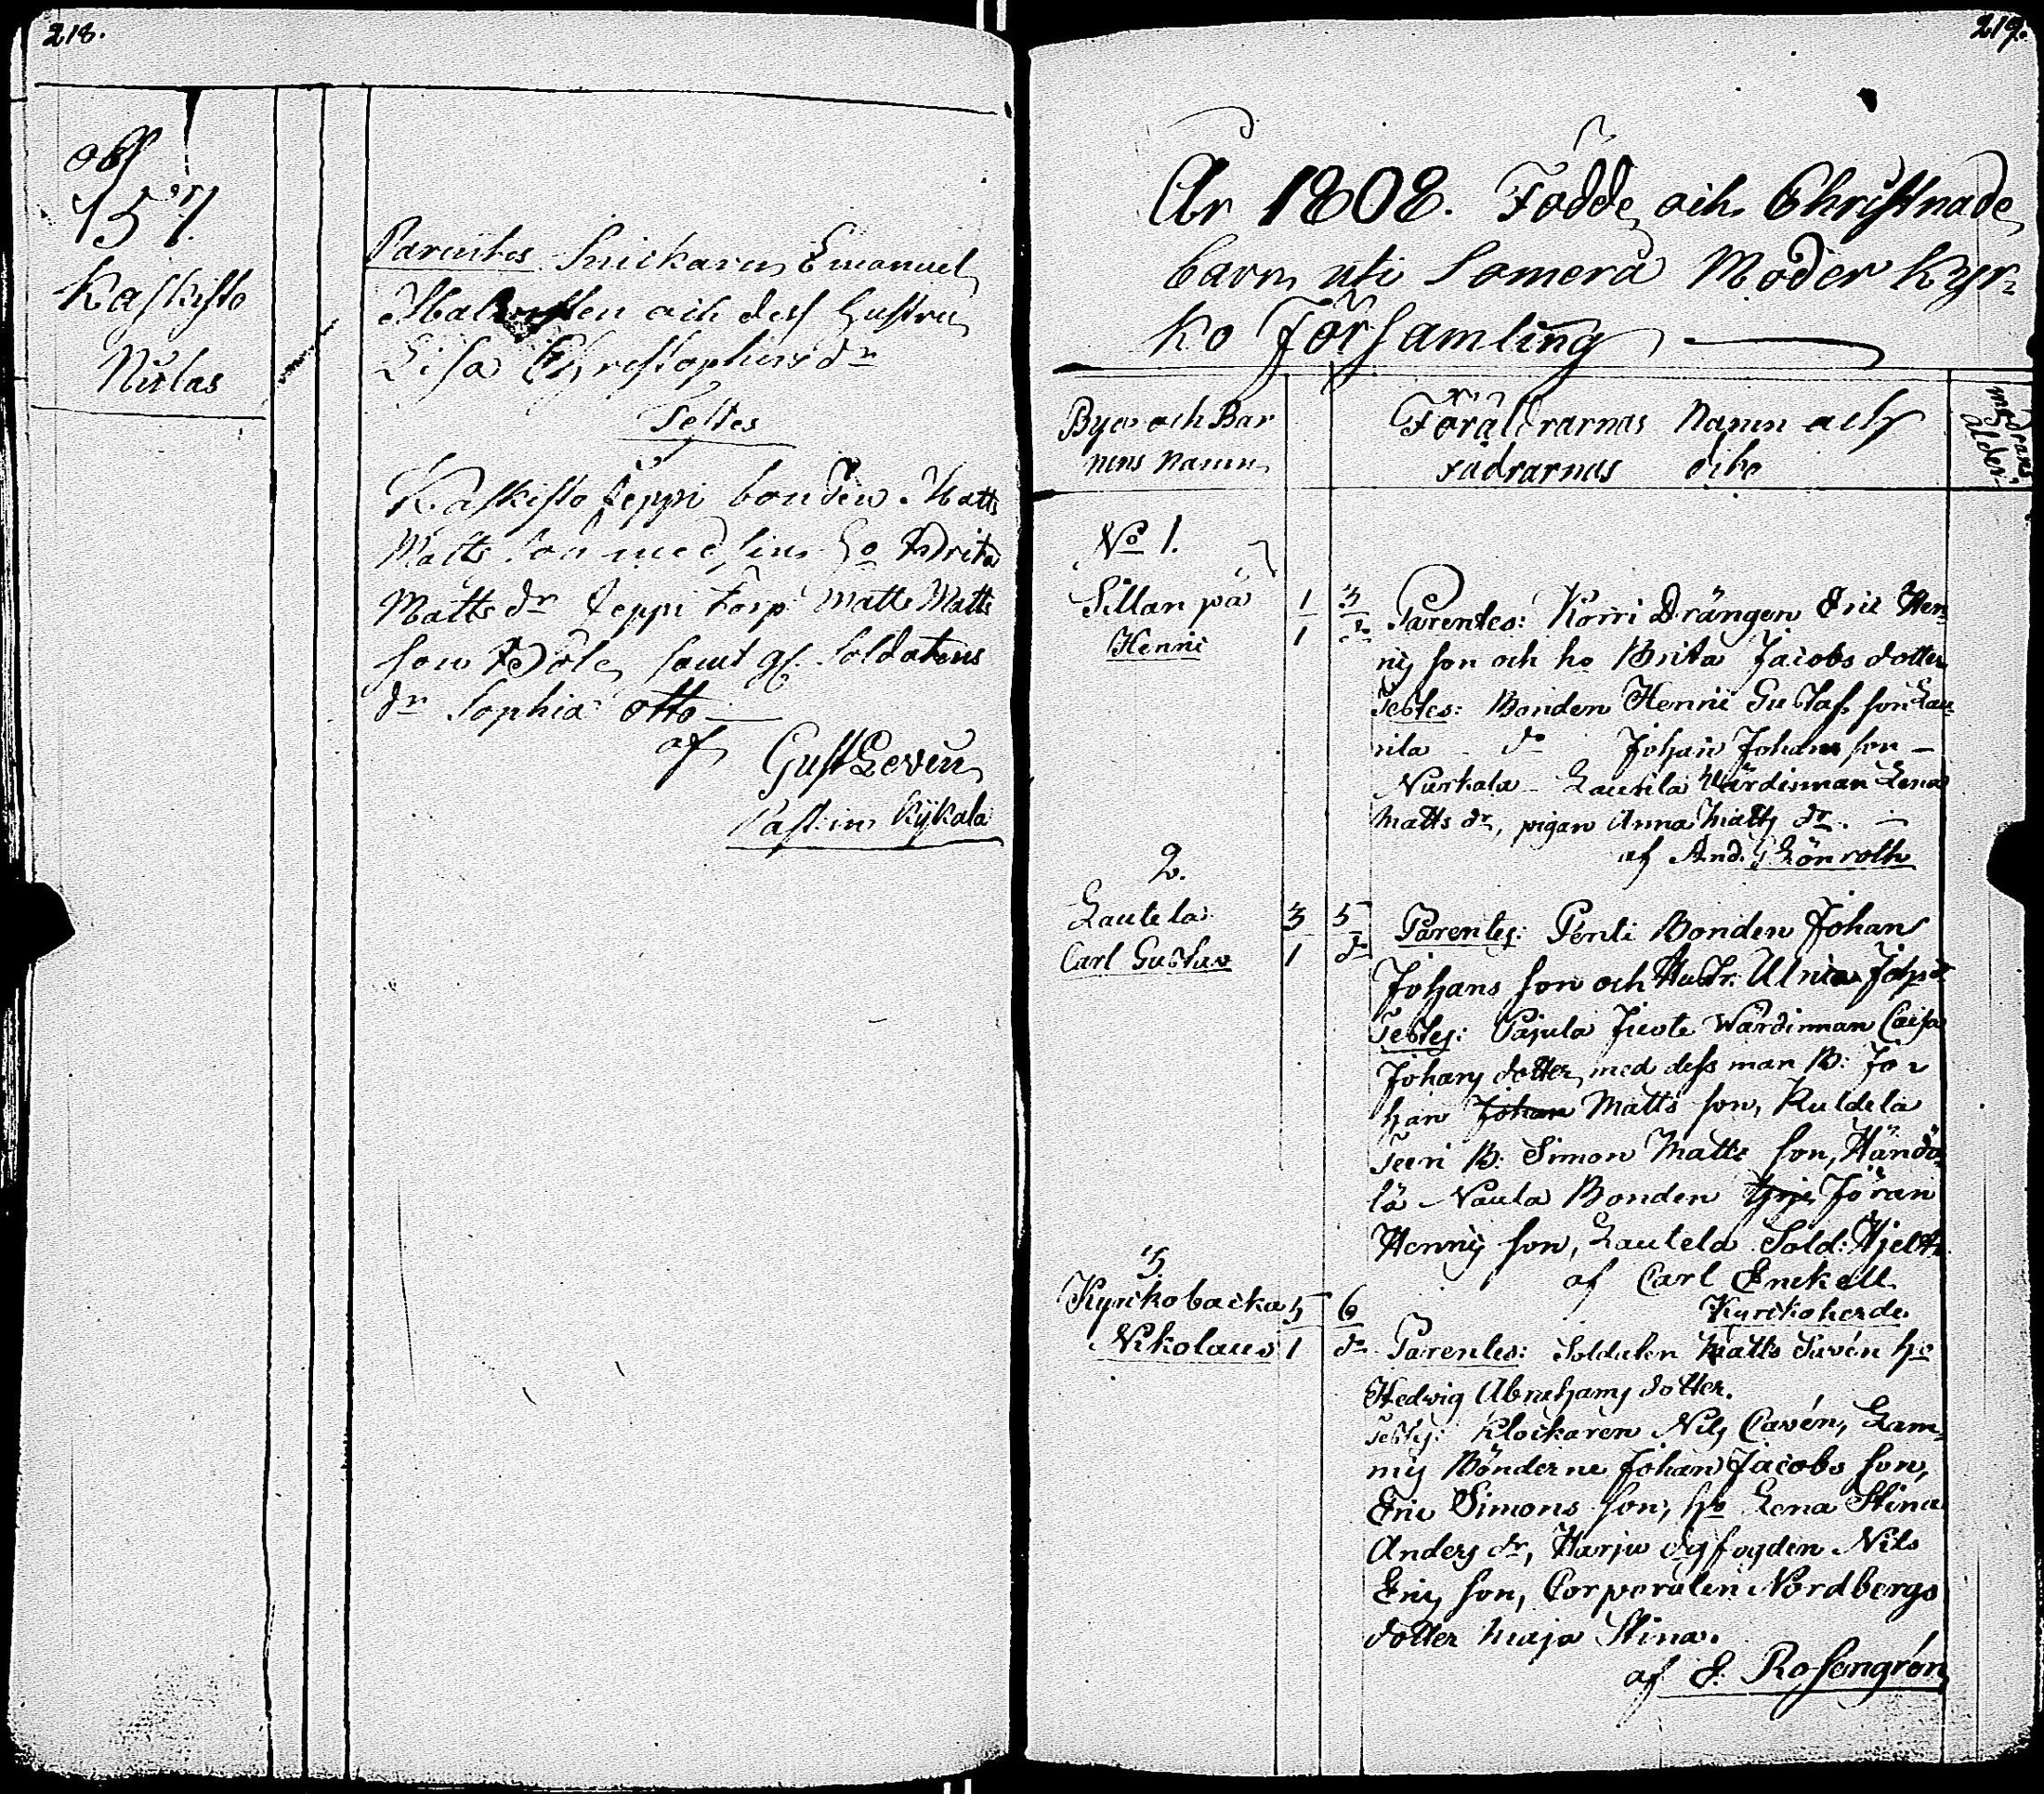 218.
obs
157.
Kaskisto
Niclas
Parentes Snickaren Emanuel
och dess hustru
Lisa Christophers dr
Testes
Kaskisto Jeppi bonden Matts
Matts son med sin ho Brita
Matts dr Jeppi Torp Matts Matts
son samt gl. Soldatens
dr Sophia Otto
af Gust Levin
Past. in Kÿkala
219.
År 1808. Födde och Christnade
barn uti Somero Moder Kyr-
ko Församling
Byar och Bar
nens namn
Föräldrarnas Namn och
fadrarnas dito
mödrans
ålder
No 1.
Sillanpä
Henric
1/1
3/dr
Parentes: Körri Drängen Eric Hen-
rics son och ho Brita Jacobs dotter
Testes: Bonden Henric Gustafs son Lau-
rila do Johan Johans son
Nurkala Laurila Wärdinnan Lena
Matts dr, pigan Anna Matts dr.
af And. Lönroth
2.
Lautela
Carl Gustav
3/1
5/dr
Parentes: Pentti Bonden Johan
Johans son och Hustr. Ulrica Joh. dr
Testes: Pajula Juote Wärdinnan Caisa
Johans dotter, med dess man B: Jo-
han Johan Matts son, Kuldela
B: Simon Matts son, Händä-
lä Naula Bonden Jöran
Henrics son, Lautela Sold: Hjelt
af Carl Enckell
Kyrckoherde
3.
Kyrckobacka
Nikolaus
5/1
6/dr
Parentes: Soldaten Matts Savén ho
Hedvig Abrahams dotter.
Testes: Klockaren Nils Cavén, Lam-
mis Bönderne Johan Jacobs son,
Eric Simons son, ho Lena Stina
Anders dr, Harju fogden Nils
Erics son, Corporalen Nordbergs
dotter Maja Stina.
af E. Rosengrén